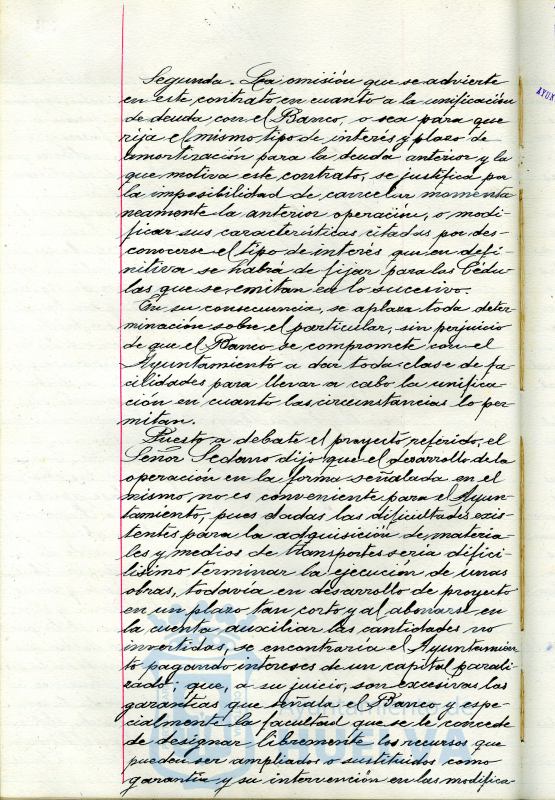 Segunda.- La emisión que se advierte
en este contrato en cuanto a la unificación
de deuda con el Banco, o sea para que
rija el mismo tipo de interés y plazo de
amortización para la deuda anterior y la
que motiva este contrato, se justifica por
la imposibilidad de cancelar momenta
neamente la anterior operación, o modi-
ficar sus características citadas por des-
conocerse el tipo de interés que en defi-
nitiva se habrá de fijar para las Cédu-
las que se emitan en lo sucesivo.
En su consecuencia, se aplaza toda deter
minación sobre el particular, sin perjuicio
de que el Banco se compromete con el
Ayuntamiento a dar toda clase de fa-
cilidades para llevar a cabo la unifica-
ción en cuanto las circunstancias lo per
mitan.
Puesto a debate el proyecto referido, el
Señor Sedano dijo que el desarrollo de la
operación en la forma señalada en el
mismo, no es conveniente para el Ayun-
tamiento, pues dadas las dificultades exis-
tentes para la adquisición de materia-
les y medios de transportes sería difici-
lísimo terminar la ejecución de unas
obras, todavía en desarrollo de proyecto
en un plazo tan corto y al abonarse en
la cuenta auxiliar las cantidades no
invertidas, se encontraría el Ayuntamien
to pagando intereses de un capital parali
zado; que, a su juicio, son excesivas las
garantías que señala el Banco y espe-
cialmente la facultad que se le concede
de designar libremente los recursos que
puedan ser ampliados o sustituidos como
garantía y su intervención en las modifica-
AYUN
Ayuntamiento de
HUELVA